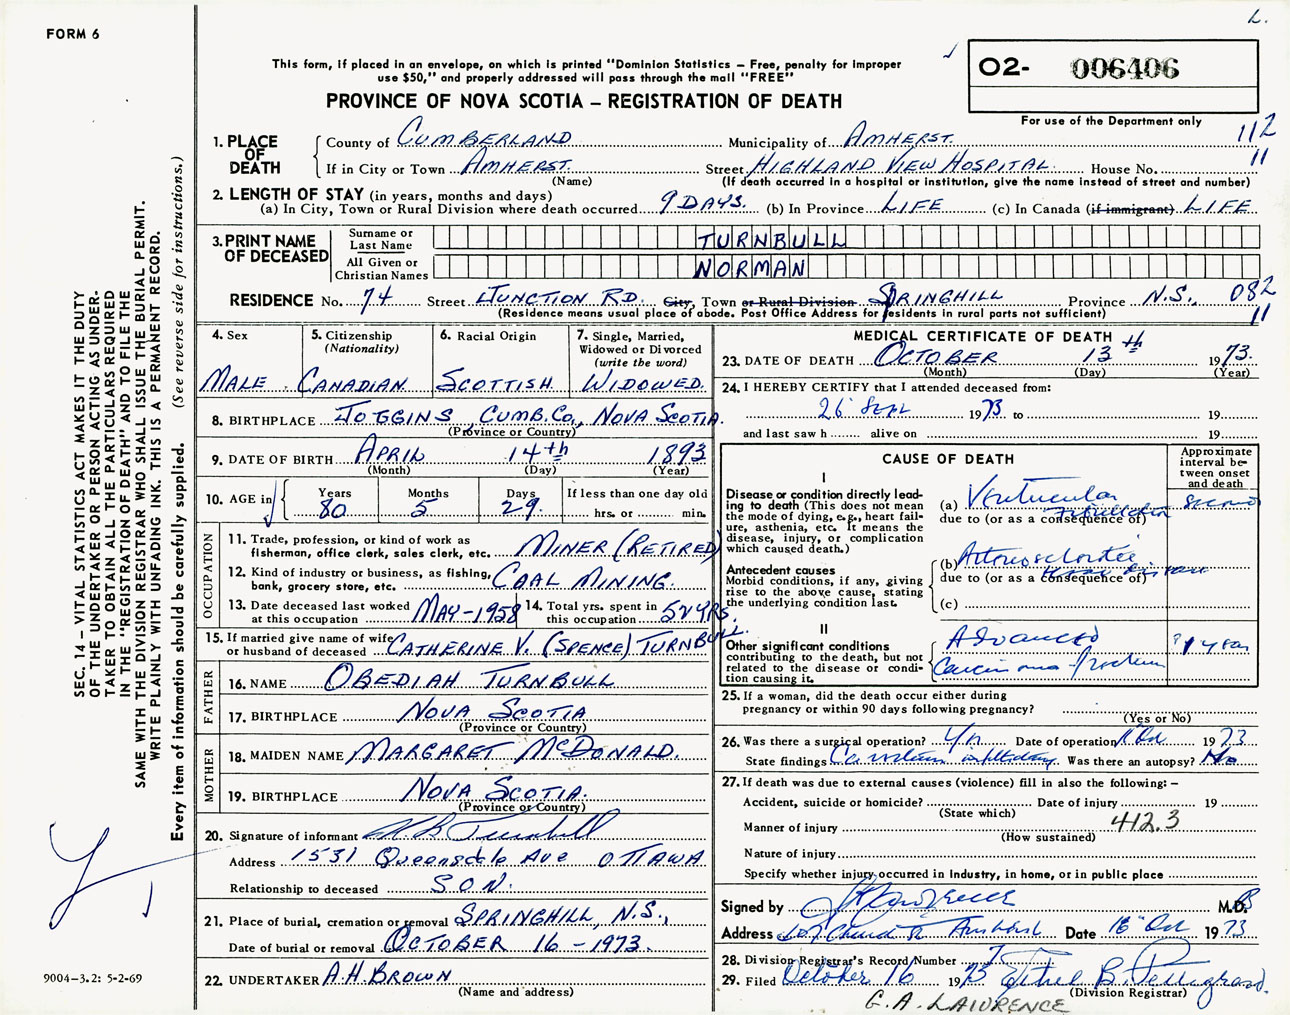 L.
FORM 6
This form, if placed in an envelope, on which is printed "Dominion Statistics – Free, penalty for improper
use $50," and properly addressed will pass through the mail "FREE"
PROVINCE OF NOVA SCOTIA – REGISTRATION OF DEATH
O2- 006406
For use of the Department only
1. PLACE OF DEATH
County of CUMBERLAND Municipality of AMHERST. 112
If in City or Town AMHERST. Street HIGHLAND VIEW HOSPITAL House No. 11
(Name) (If death occurred in a hospital or institution, give the name instead of street and number)
2. LENGTH OF STAY (in years, months and days)
(a) In City, Town or Rural Division where death occurred 9 DAYS. (b) In Province LIFE (c) In Canada (if immigrant) LIFE
3. PRINT NAME OF DECEASED
Surname or Last Name TURNBULL
All Given or Christian Names NORMAN
RESIDENCE No. 74 Street JUNCTION RD. City, Town or Rural Division SPRINGHILL Province N.S. 082
(Residence means usual place of abode. Post Office Address for residents in rural parts not sufficient) 11
4. Sex MALE
5. Citizenship (Nationality) CANADIAN
6. Racial Origin SCOTTISH
7. Single, Married, Widowed or Divorced (write the word) WIDOWED.
8. BIRTHPLACE JOGGINS, CUMB. CO., NOVA SCOTIA.
(Province or Country)
9. DATE OF BIRTH APRIL 14th 1893
(Month) (Day) (Year)
10. AGE in Years 80 Months 5 Days 29. If less than one day old
hrs. or min.
OCCUPATION
11. Trade, profession, or kind of work as
fisherman, office clerk, sales clerk, etc. MINER (RETIRED)
12. Kind of industry or business, as fishing,
bank, grocery store, etc. COAL MINING.
13. Date deceased last worked
at this occupation MAY-1958
14. Total yrs. spent in
this occupation 52 YRS.
15. If married give name of wife
or husband of deceased CATHERINE V. (SPENCE) TURNBULL.
FATHER
16. NAME OBEDIAH TURNBULL
17. BIRTHPLACE NOVA SCOTIA
(Province or Country)
MOTHER
18. MAIDEN NAME MARGARET McDONALD.
19. BIRTHPLACE NOVA SCOTIA.
(Province or Country)
20. Signature of informant Turnbull
Address 1531 Queensdale Ave OTTAWA
Relationship to deceased SON.
21. Place of burial, cremation or removal SPRINGHILL, N.S.,
Date of burial or removal OCTOBER 16 - 1973.
22. UNDERTAKER A.H. BROWN
(Name and address)
MEDICAL CERTIFICATE OF DEATH
23. DATE OF DEATH OCTOBER 13th 1973.
(Month) (Day) (Year)
24. I HEREBY CERTIFY that I attended deceased from:
26 Sept 1973 to 19
and last saw h alive on 19
CAUSE OF DEATH
Approximate interval between onset and death
I
Disease or condition directly lead-
ing to death (This does not mean
the mode of dying, e.g., heart fail-
ure, asthenia, etc. It means the
disease, injury, or complication
which caused death.)
(a) Ventricular fibrillation
due to (or as a consequence of)
Antecedent causes
Morbid conditions, if any, giving
rise to the above cause, stating
the underlying condition last.
(b) Arteriosclerotic heart disease
due to (or as a consequence of)
(c)
II
Other significant conditions
contributing to the death, but not
related to the disease or condi-
tion causing it.
Advanced
Carcinoma 1 year
25. If a woman, did the death occur either during
pregnancy or within 90 days following pregnancy?
(Yes or No)
26. Was there a surgical operation? Yes Date of operation Oct 1973
State findings Was there an autopsy? No
27. If death was due to external causes (violence) fill in also the following: –
Accident, suicide or homicide? Date of injury 19
(State which)
Manner of injury 412.3
(How sustained)
Nature of injury
Specify whether injury occurred in industry, in home, or in public place
Signed by Lawrence M.D.
Address Church St Amherst Date 16 Oct 1973
28. Division Registrar's Record Number
29. Filed October 16 1973 Ethel B. Pettigrew
(Division Registrar)
G. A. LAWRENCE
SEC. 14 – VITAL STATISTICS ACT MAKES IT THE DUTY
OF THE UNDERTAKER OR PERSON ACTING AS UNDER-
TAKER TO OBTAIN ALL THE PARTICULARS REQUIRED
IN THE "REGISTRATION OF DEATH" AND TO FILE THE
SAME WITH THE DIVISION REGISTRAR WHO SHALL ISSUE THE BURIAL PERMIT.
WRITE PLAINLY WITH UNFADING INK. THIS IS A PERMANENT RECORD.
Every item of information should be carefully supplied. (See reverse side for instructions.)
9004-3.2: 5-2-69